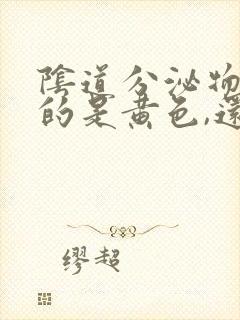 陰道分泌物
的是黃色,還
缪超